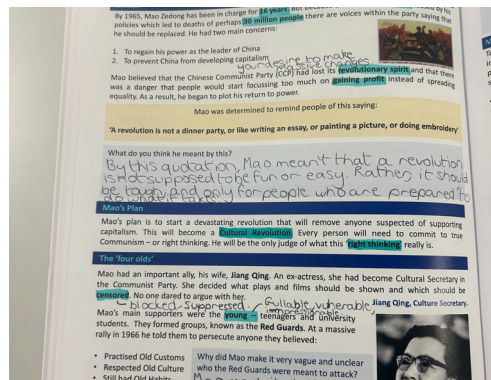 By 1965, Mao Zedong has been in charge for 16 years. But
policies which led to deaths of perhaps 30 million people there are voices within the party saying that
he should be replaced. He had two main concerns:
1. To regain his power as the leader of China
2. To prevent China from developing capitalism
your desire to make
massive changes.
Mao believed that the Chinese Communist Party (CCP) had lost its revolutionary spirit and that there
was a danger that people would start focussing too much on gaining profit instead of spreading
equality. As a result, he began to plot his return to power.
Mao was determined to remind people of this saying:
'A revolution is not a dinner party, or like writing an essay, or painting a picture, or doing embroidery'
What do you think he meant by this?
By this quotation, Mao meant that a revolution
is not supposed to be fun or easy. Rather it should
be tough and only for people who are prepared to
do what it takes.
Mao's Plan
Mao's plan is to start a devastating revolution that will remove anyone suspected of supporting
capitalism. This will become a Cultural Revolution. Every person will need to commit to true
Communism – or right thinking. He will be the only judge of what this 'right thinking' really is.
The 'four olds'
Mao had an important ally, his wife, Jiang Qing. An ex-actress, she had become Cultural Secretary in
the Communist Party. She decided what plays and films should be shown and which should be
censored. No one dared to argue with her.
blocked, suppressed.
Gullable, vulnerable,
impressionable
Jiang Qing, Culture Secretary.
Mao's main supporters were the young – teenagers and university
students. They formed groups, known as the Red Guards. At a massive
rally in 1966 he told them to persecute anyone they believed:
• Practised Old Customs
• Respected Old Culture
• Still had Old Habits
Why did Mao make it very vague and unclear
who the Red Guards were meant to attack?